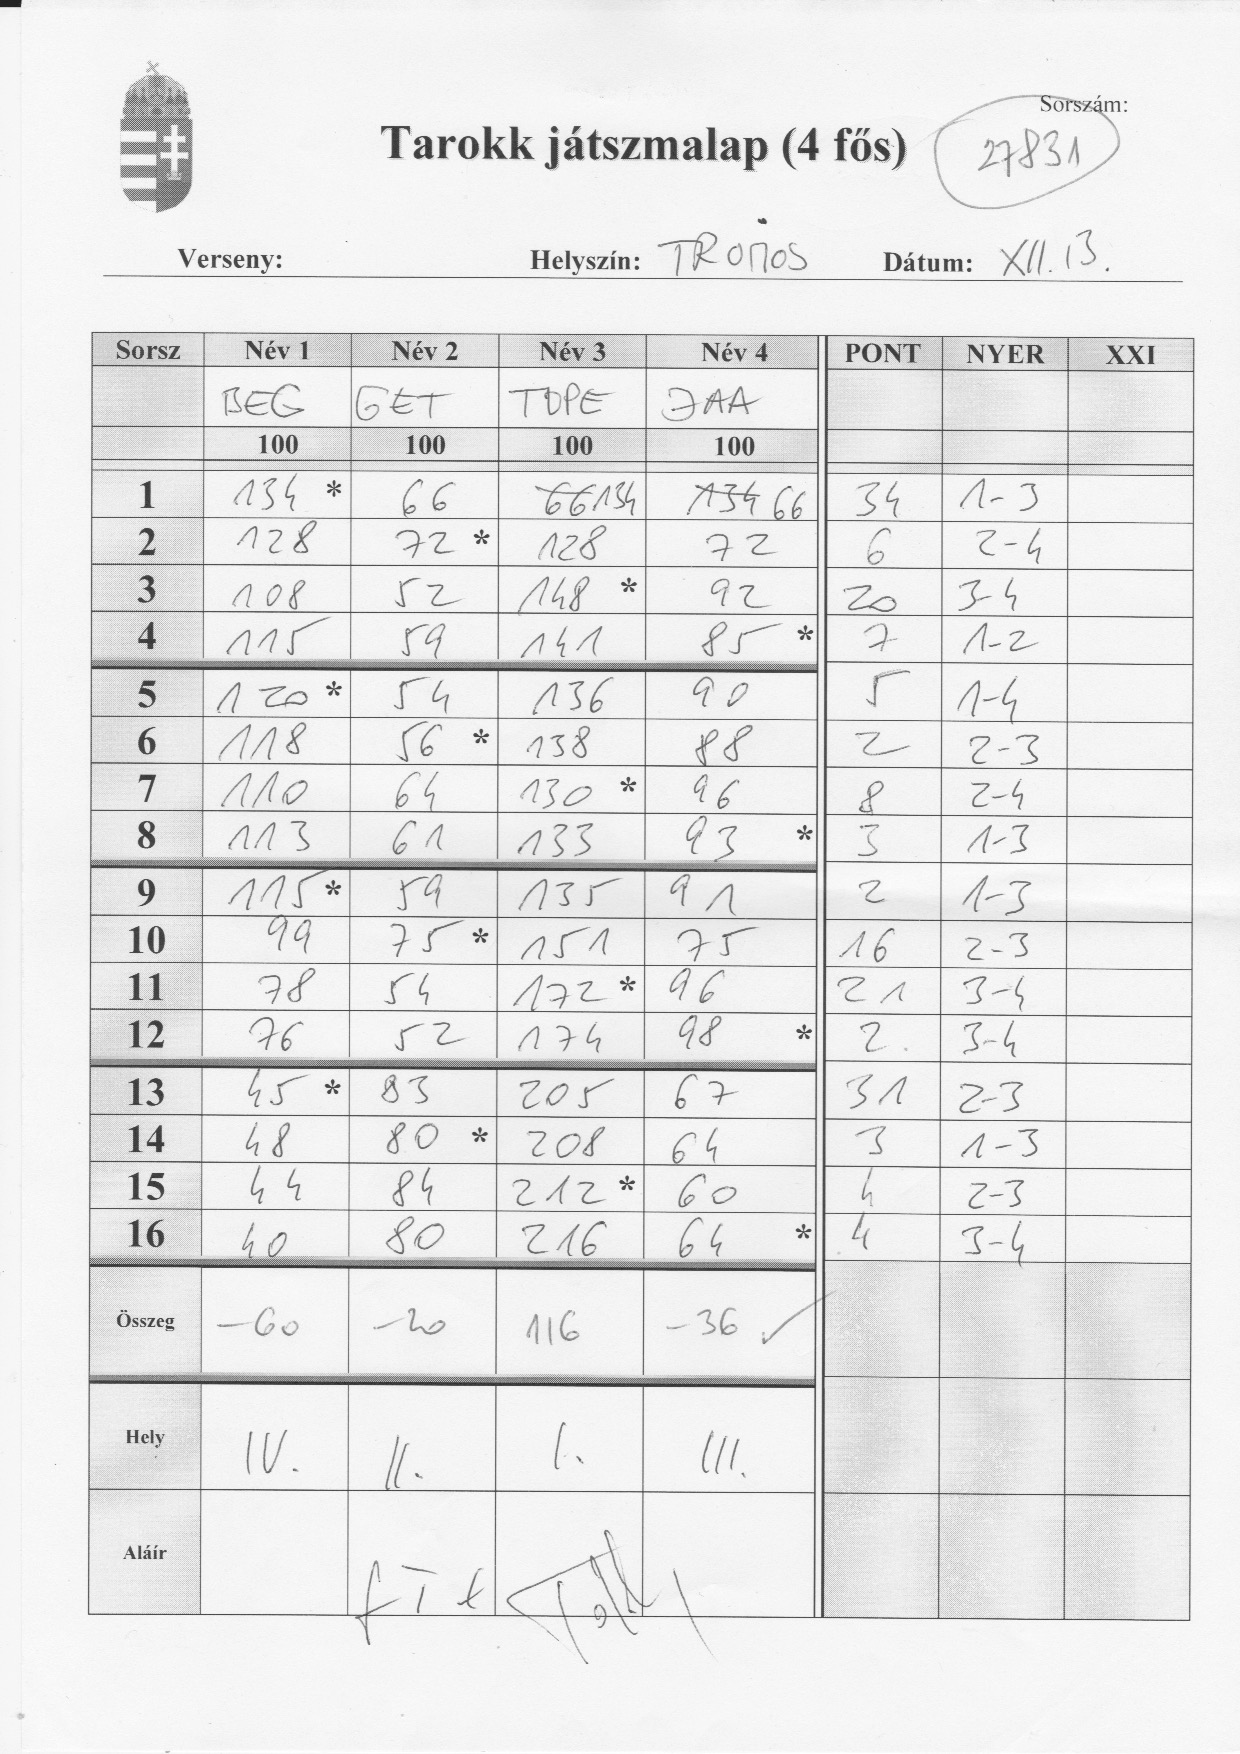 Sorszám:
Tarokk játszmalap (4 fős)
27831
Verseny: Helyszín: Dátum: XII. 13.
Sorsz Név 1 Név 2 Név 3 Név 4 PONT NYER XXI
BEG GET TOPE JAA
100 100 100 100
1 134 * 66 66 134 134 66 34 1-3
2 128 72 * 128 72 6 2-4
3 108 52 148 * 92 20 3-4
4 115 59 141 85 * 7 1-2
5 120 * 54 136 90 5 1-4
6 118 56 * 138 88 2 2-3
7 110 64 130 * 96 8 2-4
8 113 61 133 93 * 3 1-3
9 115 * 59 135 91 2 1-3
10 99 75 * 151 75 16 2-3
11 78 54 172 * 96 21 3-4
12 76 52 174 98 * 2. 3-4
13 45 * 83 205 67 31 2-3
14 48 80 * 208 64 3 1-3
15 44 84 212 * 60 4 2-3
16 40 80 216 64 * 4 3-4
Összeg -60 -20 116 -36 ✓
Hely IV. II. I. III.
Aláír